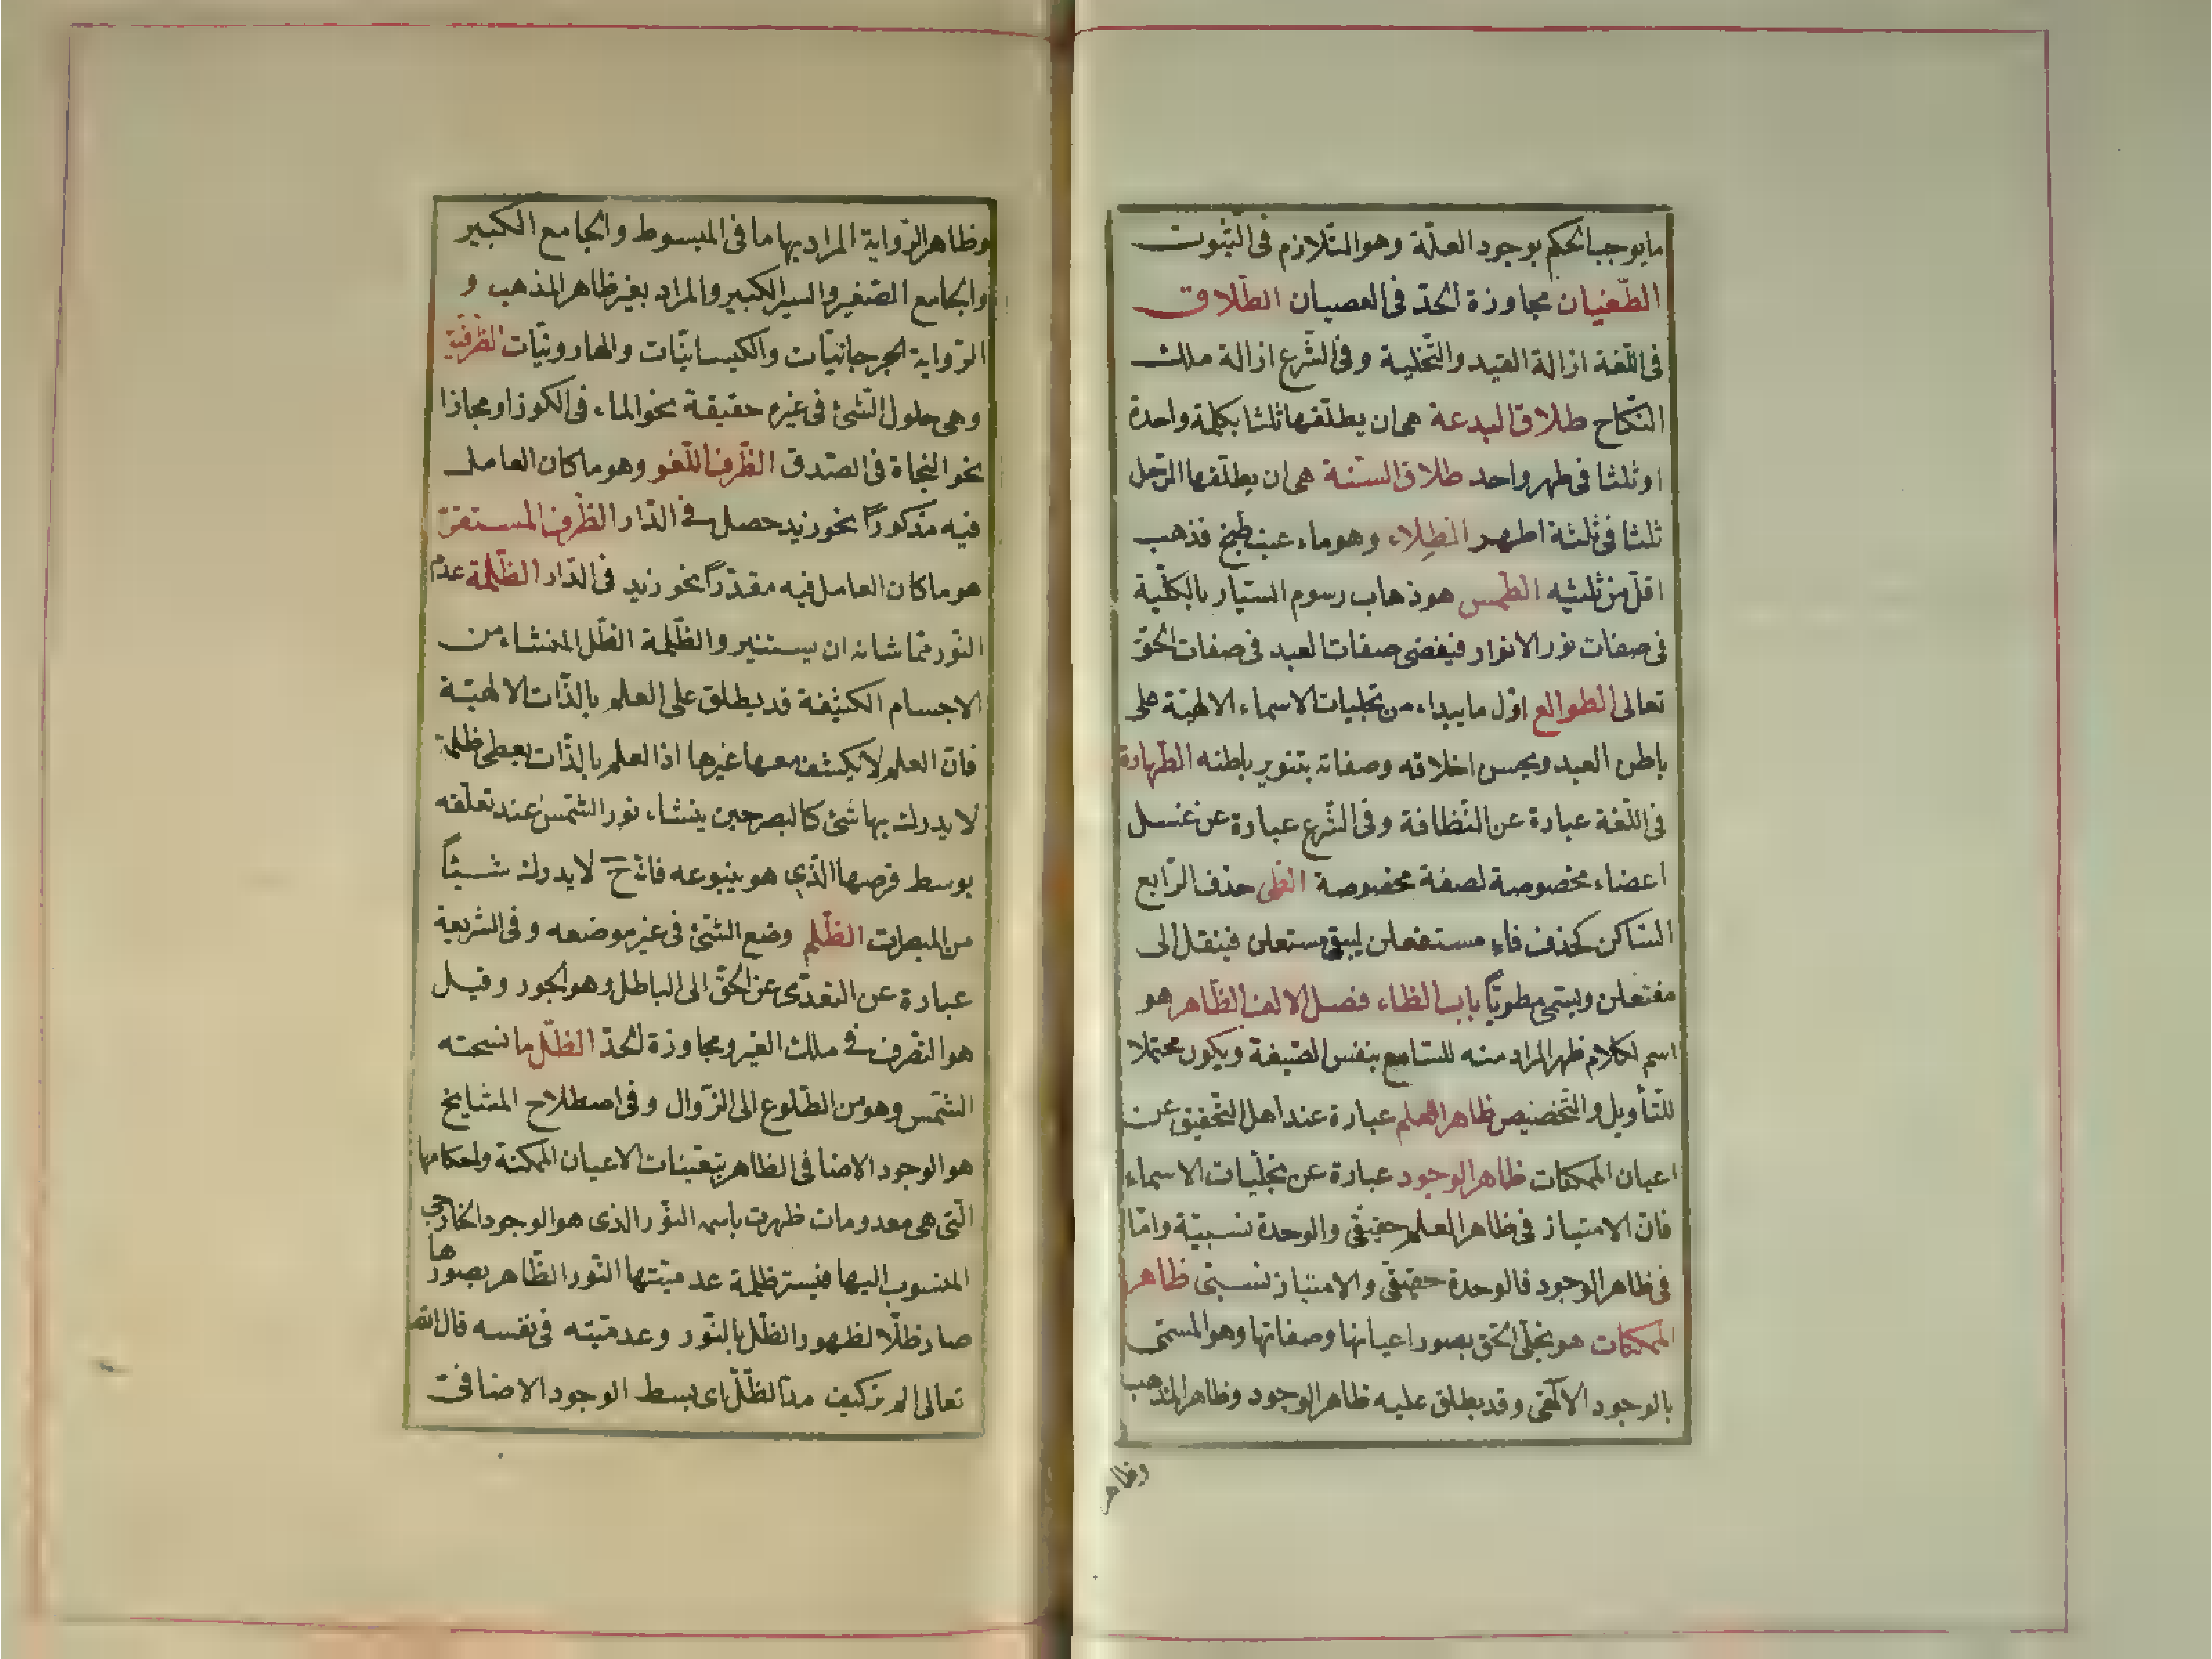 مايوجب الحكم بوجود العلّة وهو التلازم فى الثبوت
الطّغيان مجاوزة الحدّ فى العصيان الطّلاق
فى اللّغة ازالة القيد والتّخلية وفى الشّرع ازالة ملك
النّكاح طلاق البدعة هى ان يطلّقها ثلثا بكلمة واحدة
او ثلثا فى طهر واحد طلاق السنّة هى ان يطلّقها الرّجل
ثلثا فى ثلثة اطهر الطِلاء وهو ماء عنب طبخ فذهب
اقلّ من ثلثيه الطّمس هو ذهاب رسوم السيّار بالكلّية
فى صفات نور الانوار فيفنى صفات العبد فى صفات الحقّ
تعالى الطوالع اوّل ما يبداء من تجليات الاسماء الالهيّة على
باطن العبد ويحسن اخلاقه وصفاته بتنوير باطنه الطّهارة
فى اللّغة عبارة عن النّظافة وفى الشّرع عبارة عن غسل
اعضاء مخصوصة لصفة مخصوصة الطى حذف الرّابع
السّاكن كحذف فاء مستفعلن ليبقى مستعلن فينقل الى
مفتعلن ويسمّى مطويّاً باب الظاء فصل الالف الظّاهر هو
اسم لكلام ظهر المراد منه للسّامع بنفس الصّيغة ويكون محتملا
للتّأويل والتّخصيص ظاهر العلم عبارة عند اهل التّحقيق عن
اعيان الممكنات ظاهر الوجود عبارة عن تجلّيات الاسماء
فانّ الامتياز فى ظاهر العلم حقيقى والوحدة نسبيّة وامّا
فى ظاهر الوجود فالوحدة حقيقى والامتياز نسبّى ظاهر
الممكنات هو تجلّى الحق بصور اعيانها وصفاتها وهو المسمّى
بالوجود الالٓهى وقد يطلق عليه ظاهر الوجود وظاهر المذهب
وظاهر
وظاهر الرّواية المراد بها ما فى المبسوط والجامع الكبير
والجامع الصّغير والسير الكبير والمراد بغير ظاهر المذهب و
الرّواية الجرجانيّات والكيسانيّات والهارونيّات الظرفيّة
وهى حلول الشّئ فى غيره حقيقة نحو الماء فى الكوز او مجازا
نحو النجاة فى الصّدق الظّرف اللّغو وهو ما كان العامل
فيه مذكوراً نحو زيد حصل فى الدّار الظّرف المستقرّ
هو ما كان العامل فيه مقدّراً نحو زيد فى الدّار الظّلمة عدم
النّور ممّا شانه ان يستنير والظّلمة الظّل المنشاء من
الاجسام الكثيفة قد يطلق على العلم بالذّات الالهيّة
فانّ العلم لا يكشف معها غيرها اذ العلم بالذّات يعطى ظلمة
لا يدرك بها شئ كالبصر حين ينشاء نور الشّمس عند تعلّقه
بوسط قرصها الّذى هو ينبوعه فانّه ح لا يدرك شيئاً
من المبصرات الظّلم وضع الشّئ فى غير موضعه وفى الشّريعة
عبارة عن التعدّى عن الحقّ الى الباطل وهو الجور وقيل
هو التصّرف فى ملك الغير ومجاوزة الحدّ الظّلّ ما نسخته
الشّمس وهو من الطّلوع الى الزّوال وفى اصطلاح المشايخ
هو الوجود الاضافى الظاهر بتعيّنات الاعيان الممكنة واحكامها
الّتى هى معدومات ظهرت باسمه النوّر الذى هو الوجود الخارجى
المنسوب اليها فيستر ظلمة عدميّتها النّور الظّاهر بصورها
صار ظلّا لظهور الظّل بالنّور وعدميّته فى نفسه قال اللّه
تعالى الم تر كيف مدّ الظّلّ اى بسط الوجود الاضافى